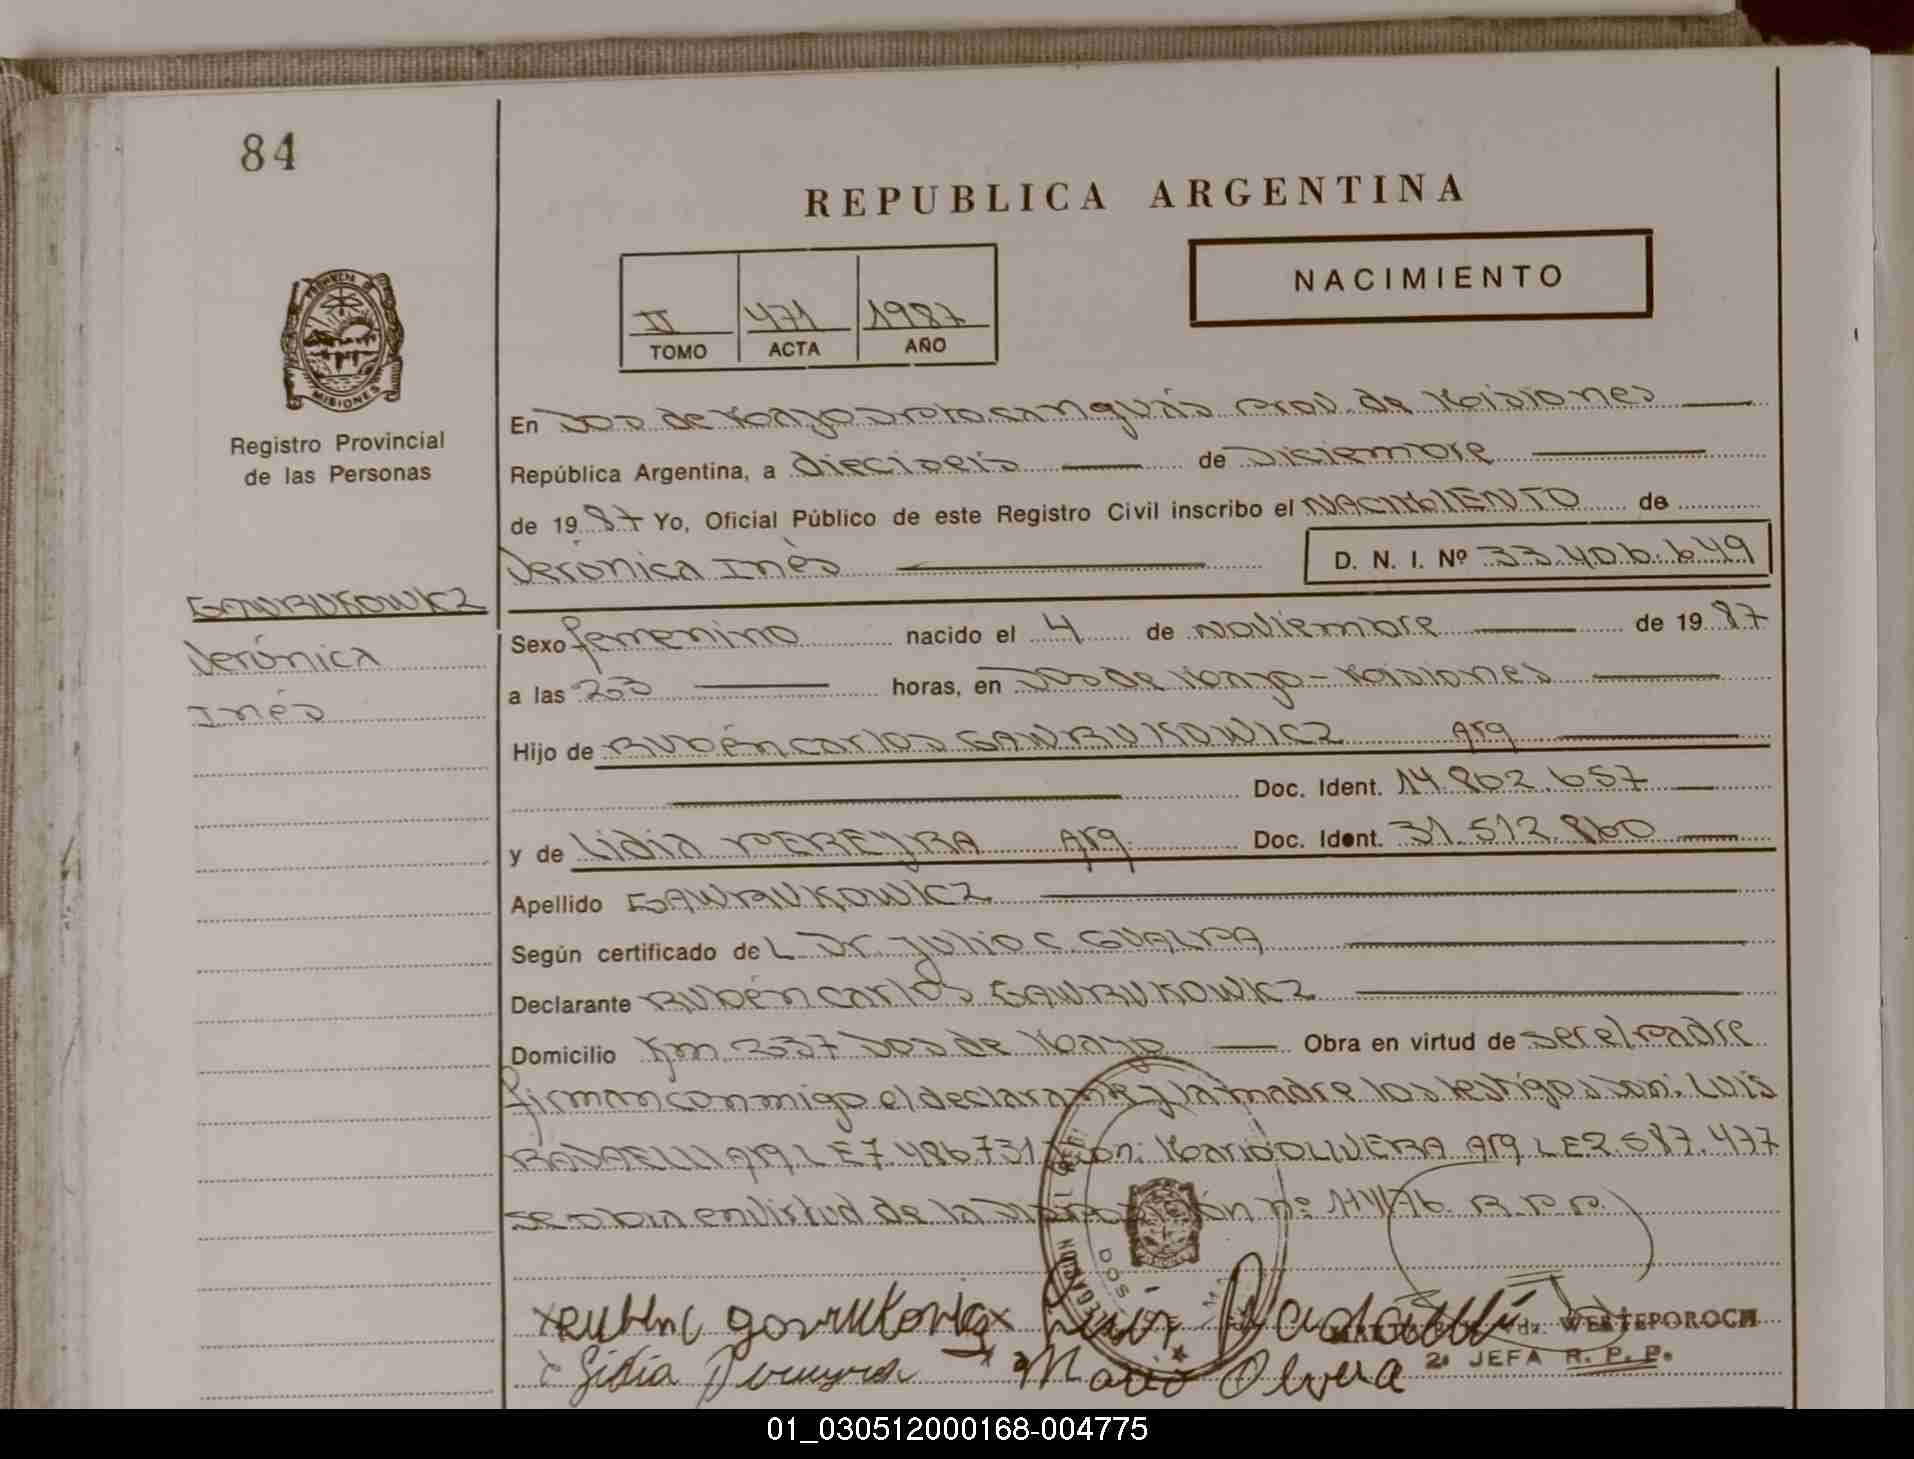 84
REPUBLICA ARGENTINA
II 471 1987
TOMO ACTA AÑO
NACIMIENTO
PROVINCIA DE
MISIONES
Registro Provincial
de las Personas
En Dos de Mayo Dpto. Cainguás Prov. de Misiones
República Argentina, a dieciseis de Diciembre
de 1987 Yo, Oficial Público de este Registro Civil inscribo el NACIMIENTO de
Verónica Inés D. N. I. Nº 33.406.649
GAWRUKOWICZ
Verónica
Inés
Sexo femenino nacido el 4 de noviembre de 1987
a las 23 horas, en Dos de Mayo - Misiones
Hijo de Rubén Carlos GAWRUKOWICZ Arg
Doc. Ident. 14.802.657
y de Lidia PEREYRA Arg Doc. Ident. 31.512.860
Apellido GAWRUKOWICZ
Según certificado de L Dr. Julio C. GUALPA
Declarante Rubén Carlos GAWRUKOWICZ
Domicilio Km 237 Dos de Mayo Obra en virtud de ser el padre
firman conmigo el declarante y la madre los testigos Don: Luis
RADAELLI Arg LE 7.486.731 Don: Mario OLIVERA Arg LE 2.587.477
se obra en virtud de la nº R.P.P.
DOS
Ruben C
Luis Radaelli
WESTEPOROCH
2ª JEFA R. P. P.
Lidia Pereyra
Mario Olivera
01_030512000168-004775